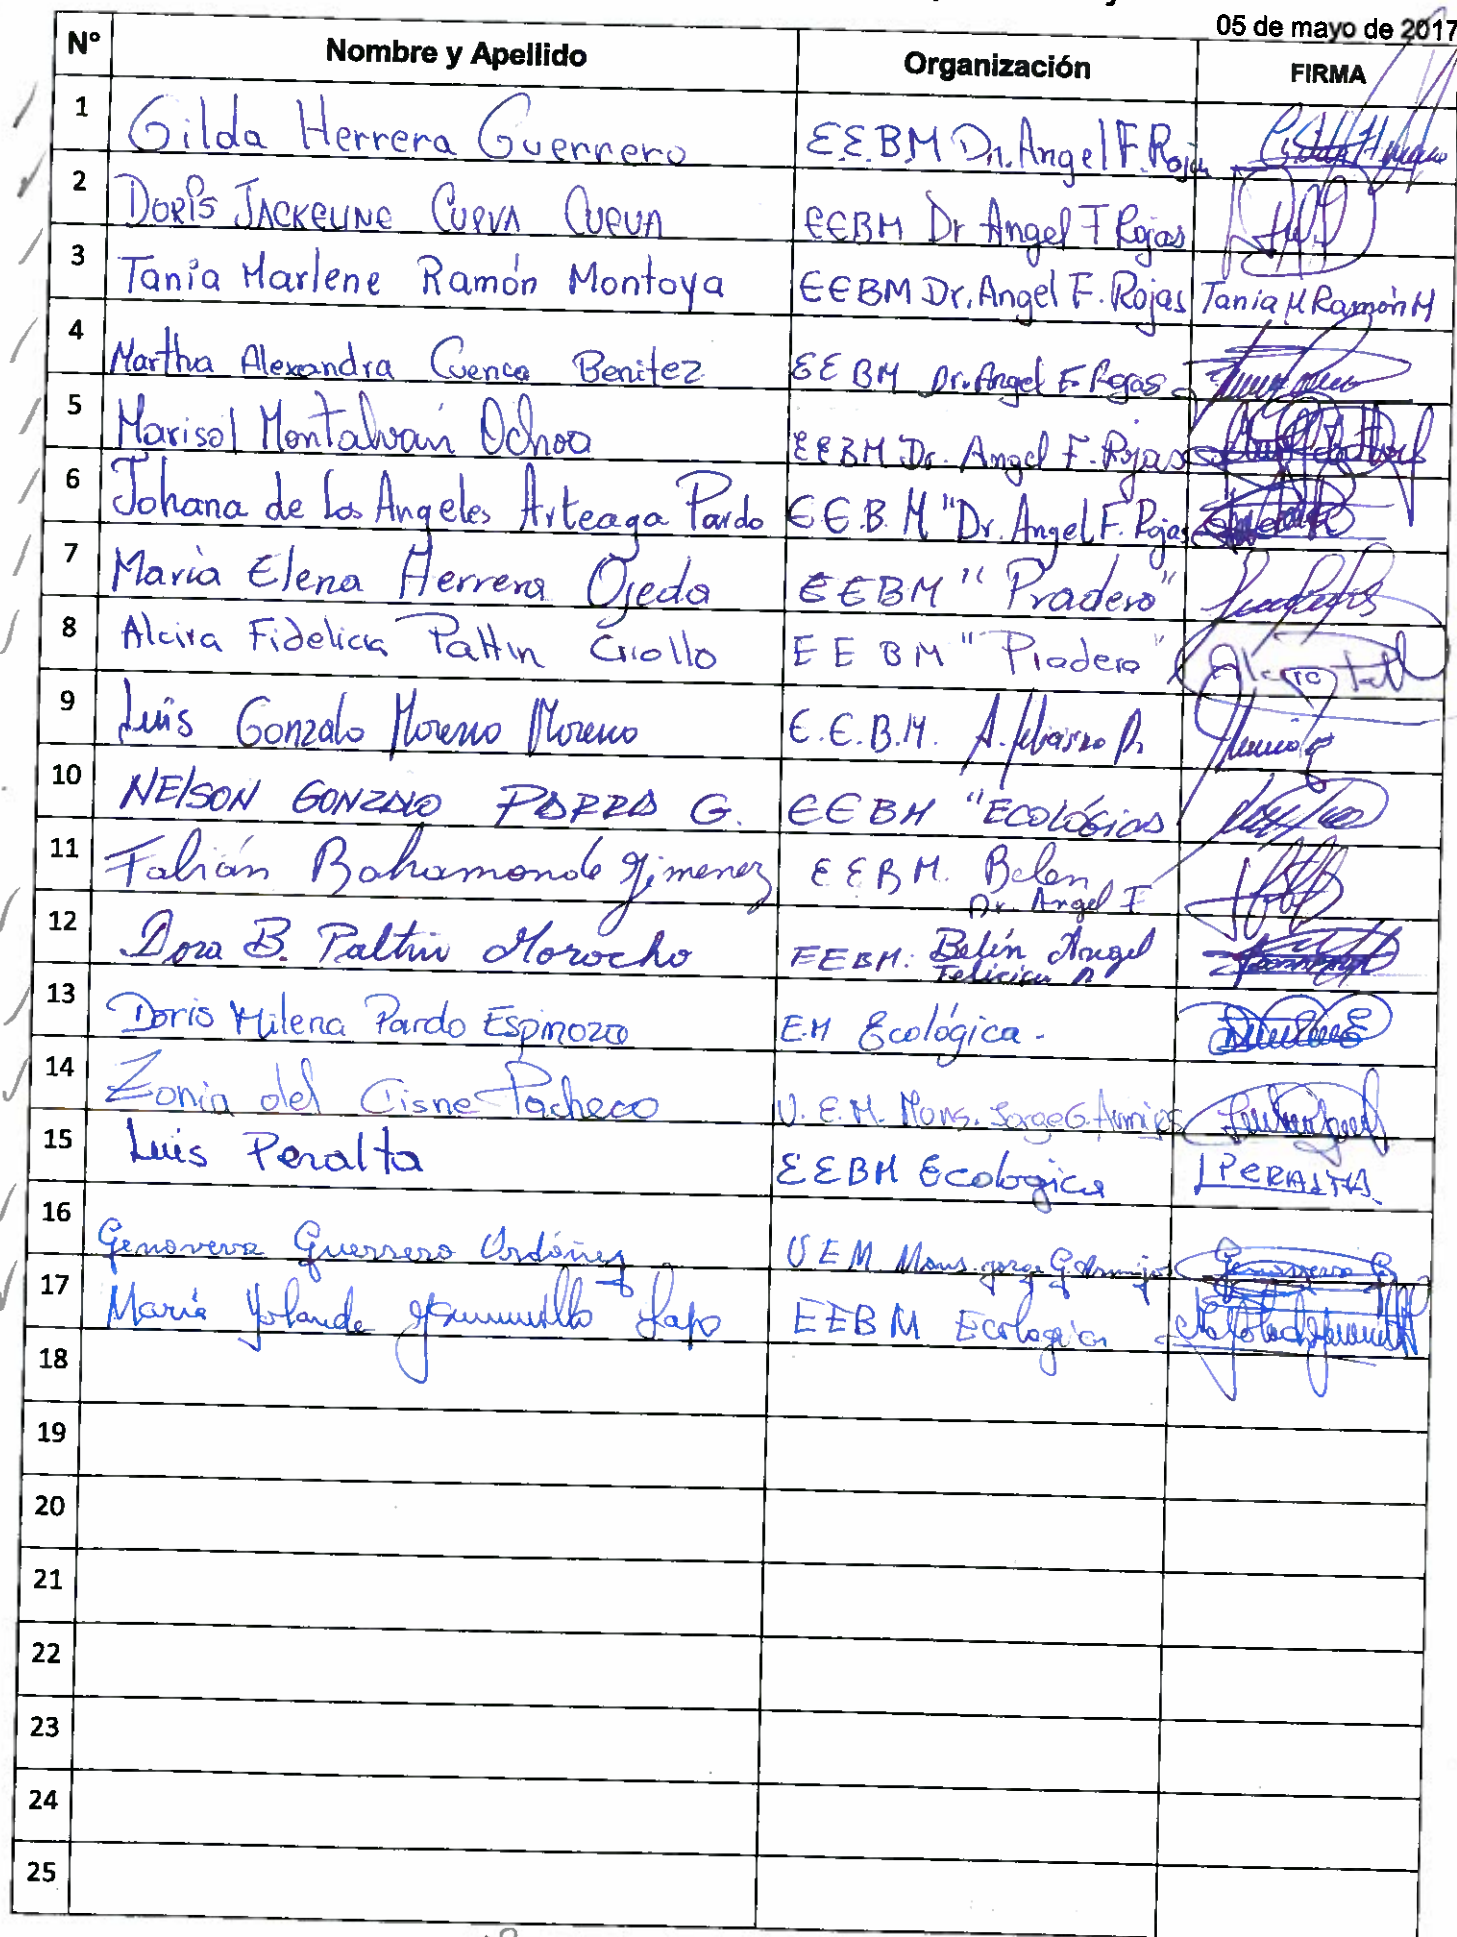 05 de mayo de 2017
N° Nombre y Apellido Organización FIRMA
1 Gilda Herrera Guerrero E.E.B.M Dr. Angel F. Rojas
2 DORIS JACKELINE CUEVA CUEVA EEBM Dr Angel F Rojas
3 Tania Marlene Ramón Montoya EEBM Dr. Angel F. Rojas Tania M Ramón M
4 Martha Alexandra Cuenca Benitez EEBM Dr. Angel F. Rojas
5 Marisol Montalván Ochoa EEBM Dr. Angel F. Rojas
6 Johana de los Angeles Arteaga Pardo E.E.B.M "Dr. Angel F. Rojas
7 María Elena Herrera Ojeda EEBM "Pradera"
8 Alcira Fidelicia Paltin Criollo EEBM "Pradera"
9 Luis Gonzalo Moreno Moreno E.E.B.M. A.
10 NELSON GONZALO PARRA G. EEBM "ECOLÓGICA
11 Fabián Bahamonde Jimenez EEBM. Belen
Dr. Angel F
12 Dora B. Paltin Morocho EEBM: Belén Angel
Felicisimo R
13 Doris Milena Pardo Espinoza E.M Ecológica -
14 Zonia del Cisne Pacheco U.E.M. Mons. Jorge G. Armijos
15 Luis Peralta EEBM Ecologica L PERALTA
16 Genoveva Guerrero Ordóñez UEM Mons. Jorge G. Armijos
17 María Yolanda Jaramillo Lapo EEBM Ecologica
18
19
20
21
22
23
24
25